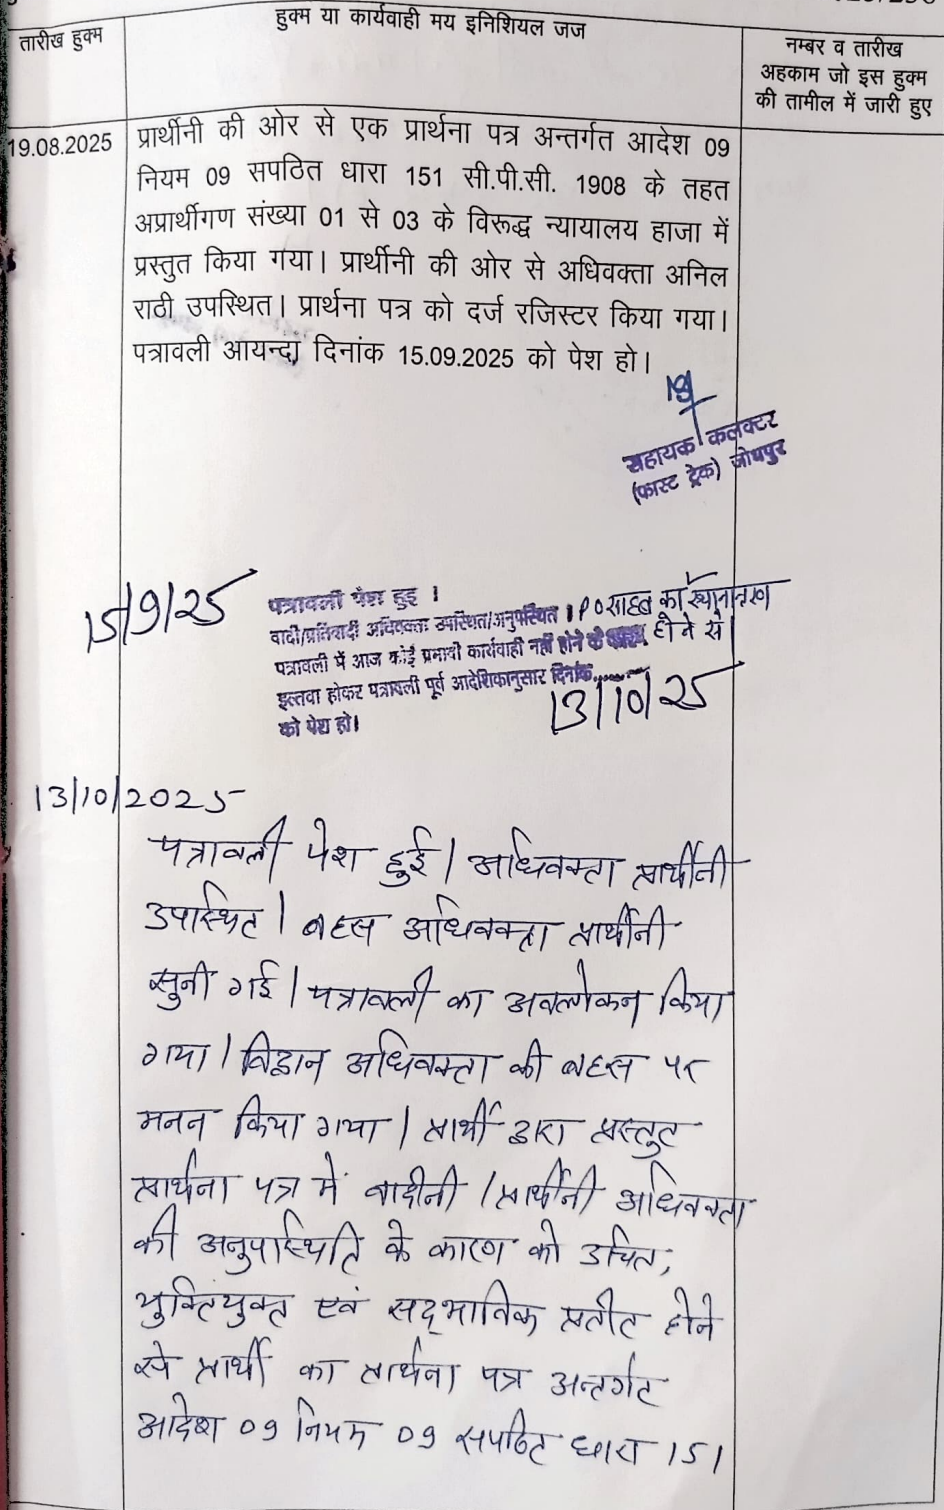 हुक्म या कार्यवाही मय इनिशियल जज
तारीख हुक्म
नम्बर व तारीख
अहकाम जो इस हुक्म
की तामील में जारी हुए
19.08.2025
प्रार्थीनी की ओर से एक प्रार्थना पत्र अन्तर्गत आदेश 09
नियम 09 सपठित धारा 151 सी.पी.सी. 1908 के तहत
अप्रार्थीगण संख्या 01 से 03 के विरूद्ध न्यायालय हाजा में
प्रस्तुत किया गया। प्रार्थीनी की ओर से अधिवक्ता अनिल
राठी उपस्थित। प्रार्थना पत्र को दर्ज रजिस्टर किया गया।
पत्रावली आयन्दा दिनांक 15.09.2025 को पेश हो।
सहायक कलक्टर
(फास्ट ट्रेक) जोधपुर
15/9/25
पत्रावली पेश हुई ।
वादी/प्रतिवादी अधिवक्ता उपस्थित/अनुपस्थित । P O साहब का स्थानान्तरण
पत्रावली में आज कोई प्रभावी कार्यवाही नहीं होने के कारण होने से।
इल्तवा होकर पत्रावली पूर्व आदेशिकानुसार दिनांक...... 13/10/25
को पेश हो।
13/10/2025
पत्रावली पेश हुई। अधिवक्ता प्रार्थीनी
उपस्थित। बहस अधिवक्ता प्रार्थीनी
सुनी गई। पत्रावली का अवलोकन किया
गया। विद्वान अधिवक्ता की बहस पर
मनन किया गया। प्रार्थी द्वारा प्रस्तुत
प्रार्थना पत्र में वादीनी/प्रार्थीनी अधिवक्ता
की अनुपस्थिति के कारण को उचित,
युक्तियुक्त एवं सद्भाविक प्रतीत होने
से प्रार्थी का प्रार्थना पत्र अन्तर्गत
आदेश 09 नियम 09 सपठित धारा 151